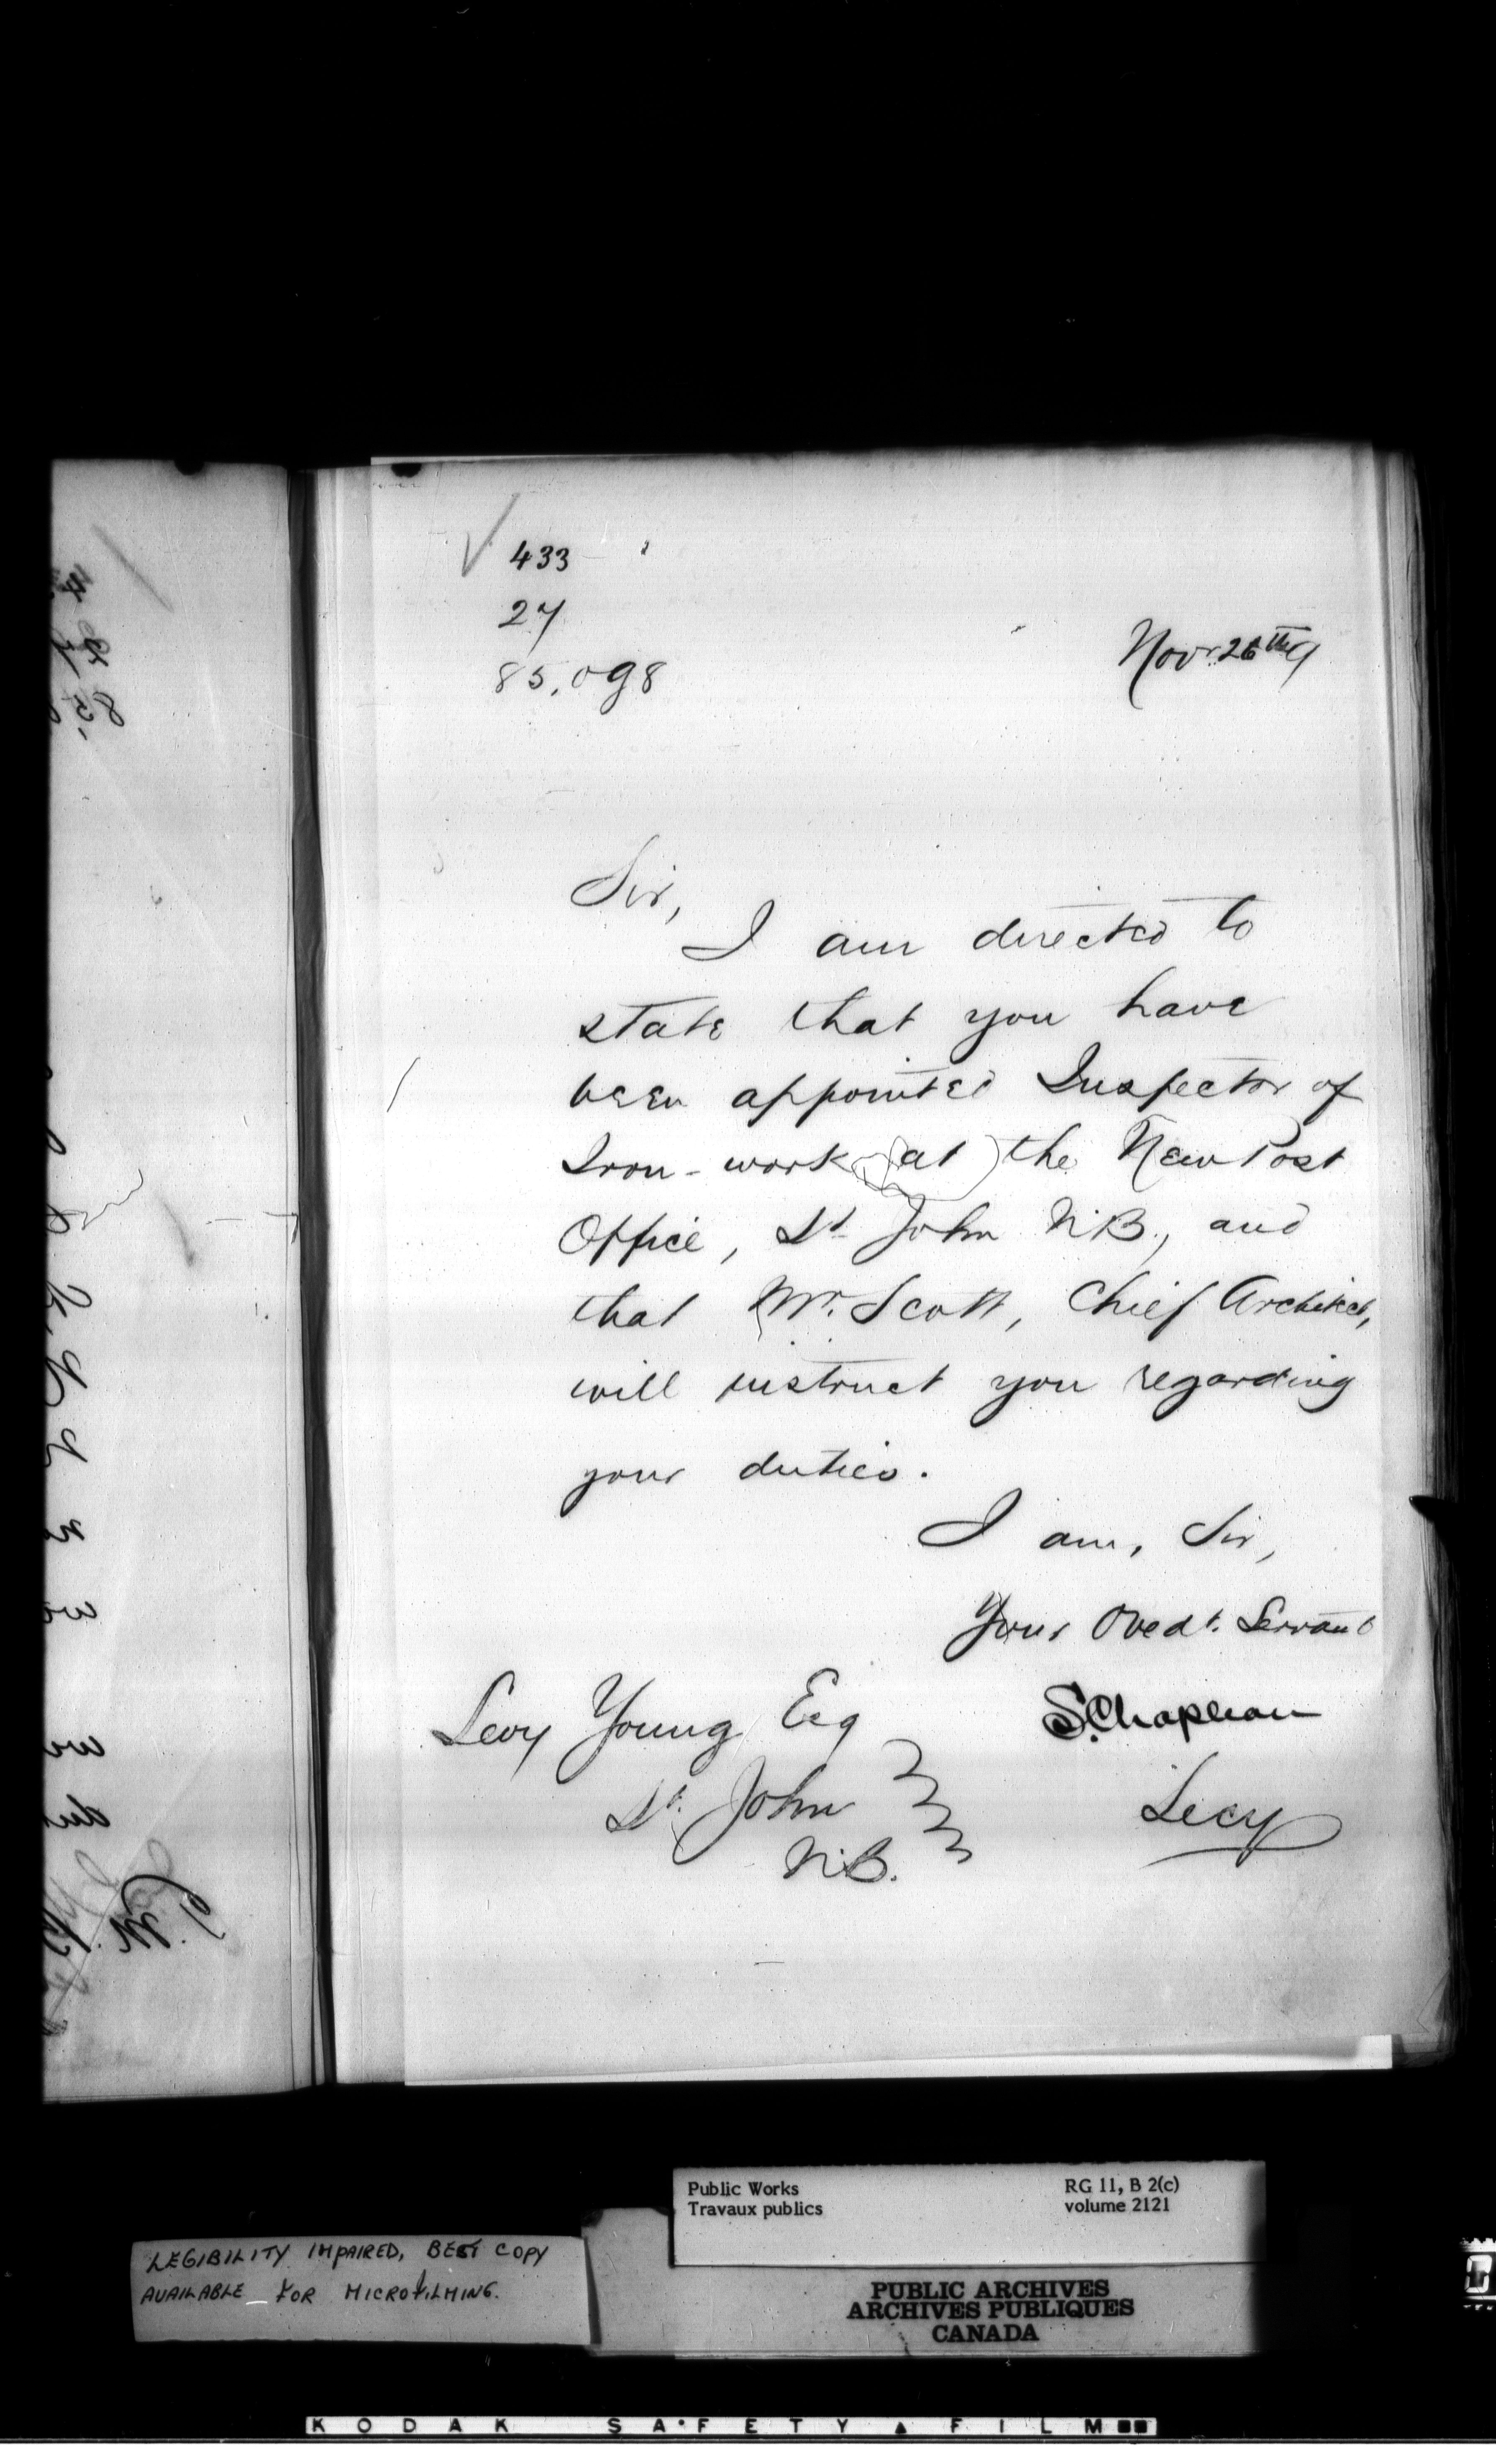 433
27
85,098
Novr. 26th 9
Sir,
I am directed to
state that you have
been appointed Inspector of
Iron-work (at) the New Post
Office, St. John N.B., and
that Mr. Scott, Chief Architect,
will instruct you regarding
your duties.
I am, Sir,
Your Obedt. Servant
S. Chapleau
Secy
Levy Young Esq
St. John
N.B.
Public Works
Travaux publics
RG 11, B 2(c)
volume 2121
LEGIBILITY IMPAIRED, BEST COPY
AVAILABLE FOR MICROFILMING.
PUBLIC ARCHIVES
ARCHIVES PUBLIQUES
CANADA
KODAK SAFETY FILM